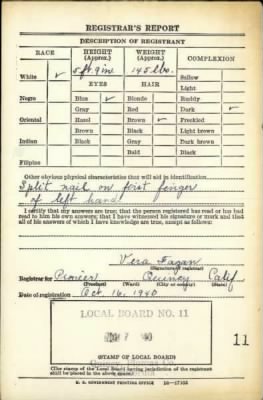 REGISTRAR'S REPORT
DESCRIPTION OF REGISTRANT
RACE HEIGHT (Approx.) WEIGHT (Approx.) COMPLEXION
5 ft. 9 in. 145 lbs.
White ✓ EYES HAIR Sallow
Light
Negro Blue ✓ Blonde Ruddy
Gray Red Dark ✓
Oriental Hazel Brown ✓ Freckled
Brown Black Light brown
Indian Black Gray Dark brown
Bald Black
Filipino
Other obvious physical characteristics that will aid in identification
Split nail on first finger
of left hand
I certify that my answers are true; that the person registered has read or has had
read to him his own answers; that I have witnessed his signature or mark and that
all of his answers of which I have knowledge are true, except as follows:
Vera Fagan
(Signature of registrar)
Registrar for Quincy Calif
(Precinct) (Ward) (City or county) (State)
Date of registration Oct. 16, 1940
LOCAL BOARD NO. 11
11
(STAMP OF LOCAL BOARD)
(The stamp of the Local Board having jurisdiction of the registrant
shall be placed in the above space)
U. S. GOVERNMENT PRINTING OFFICE